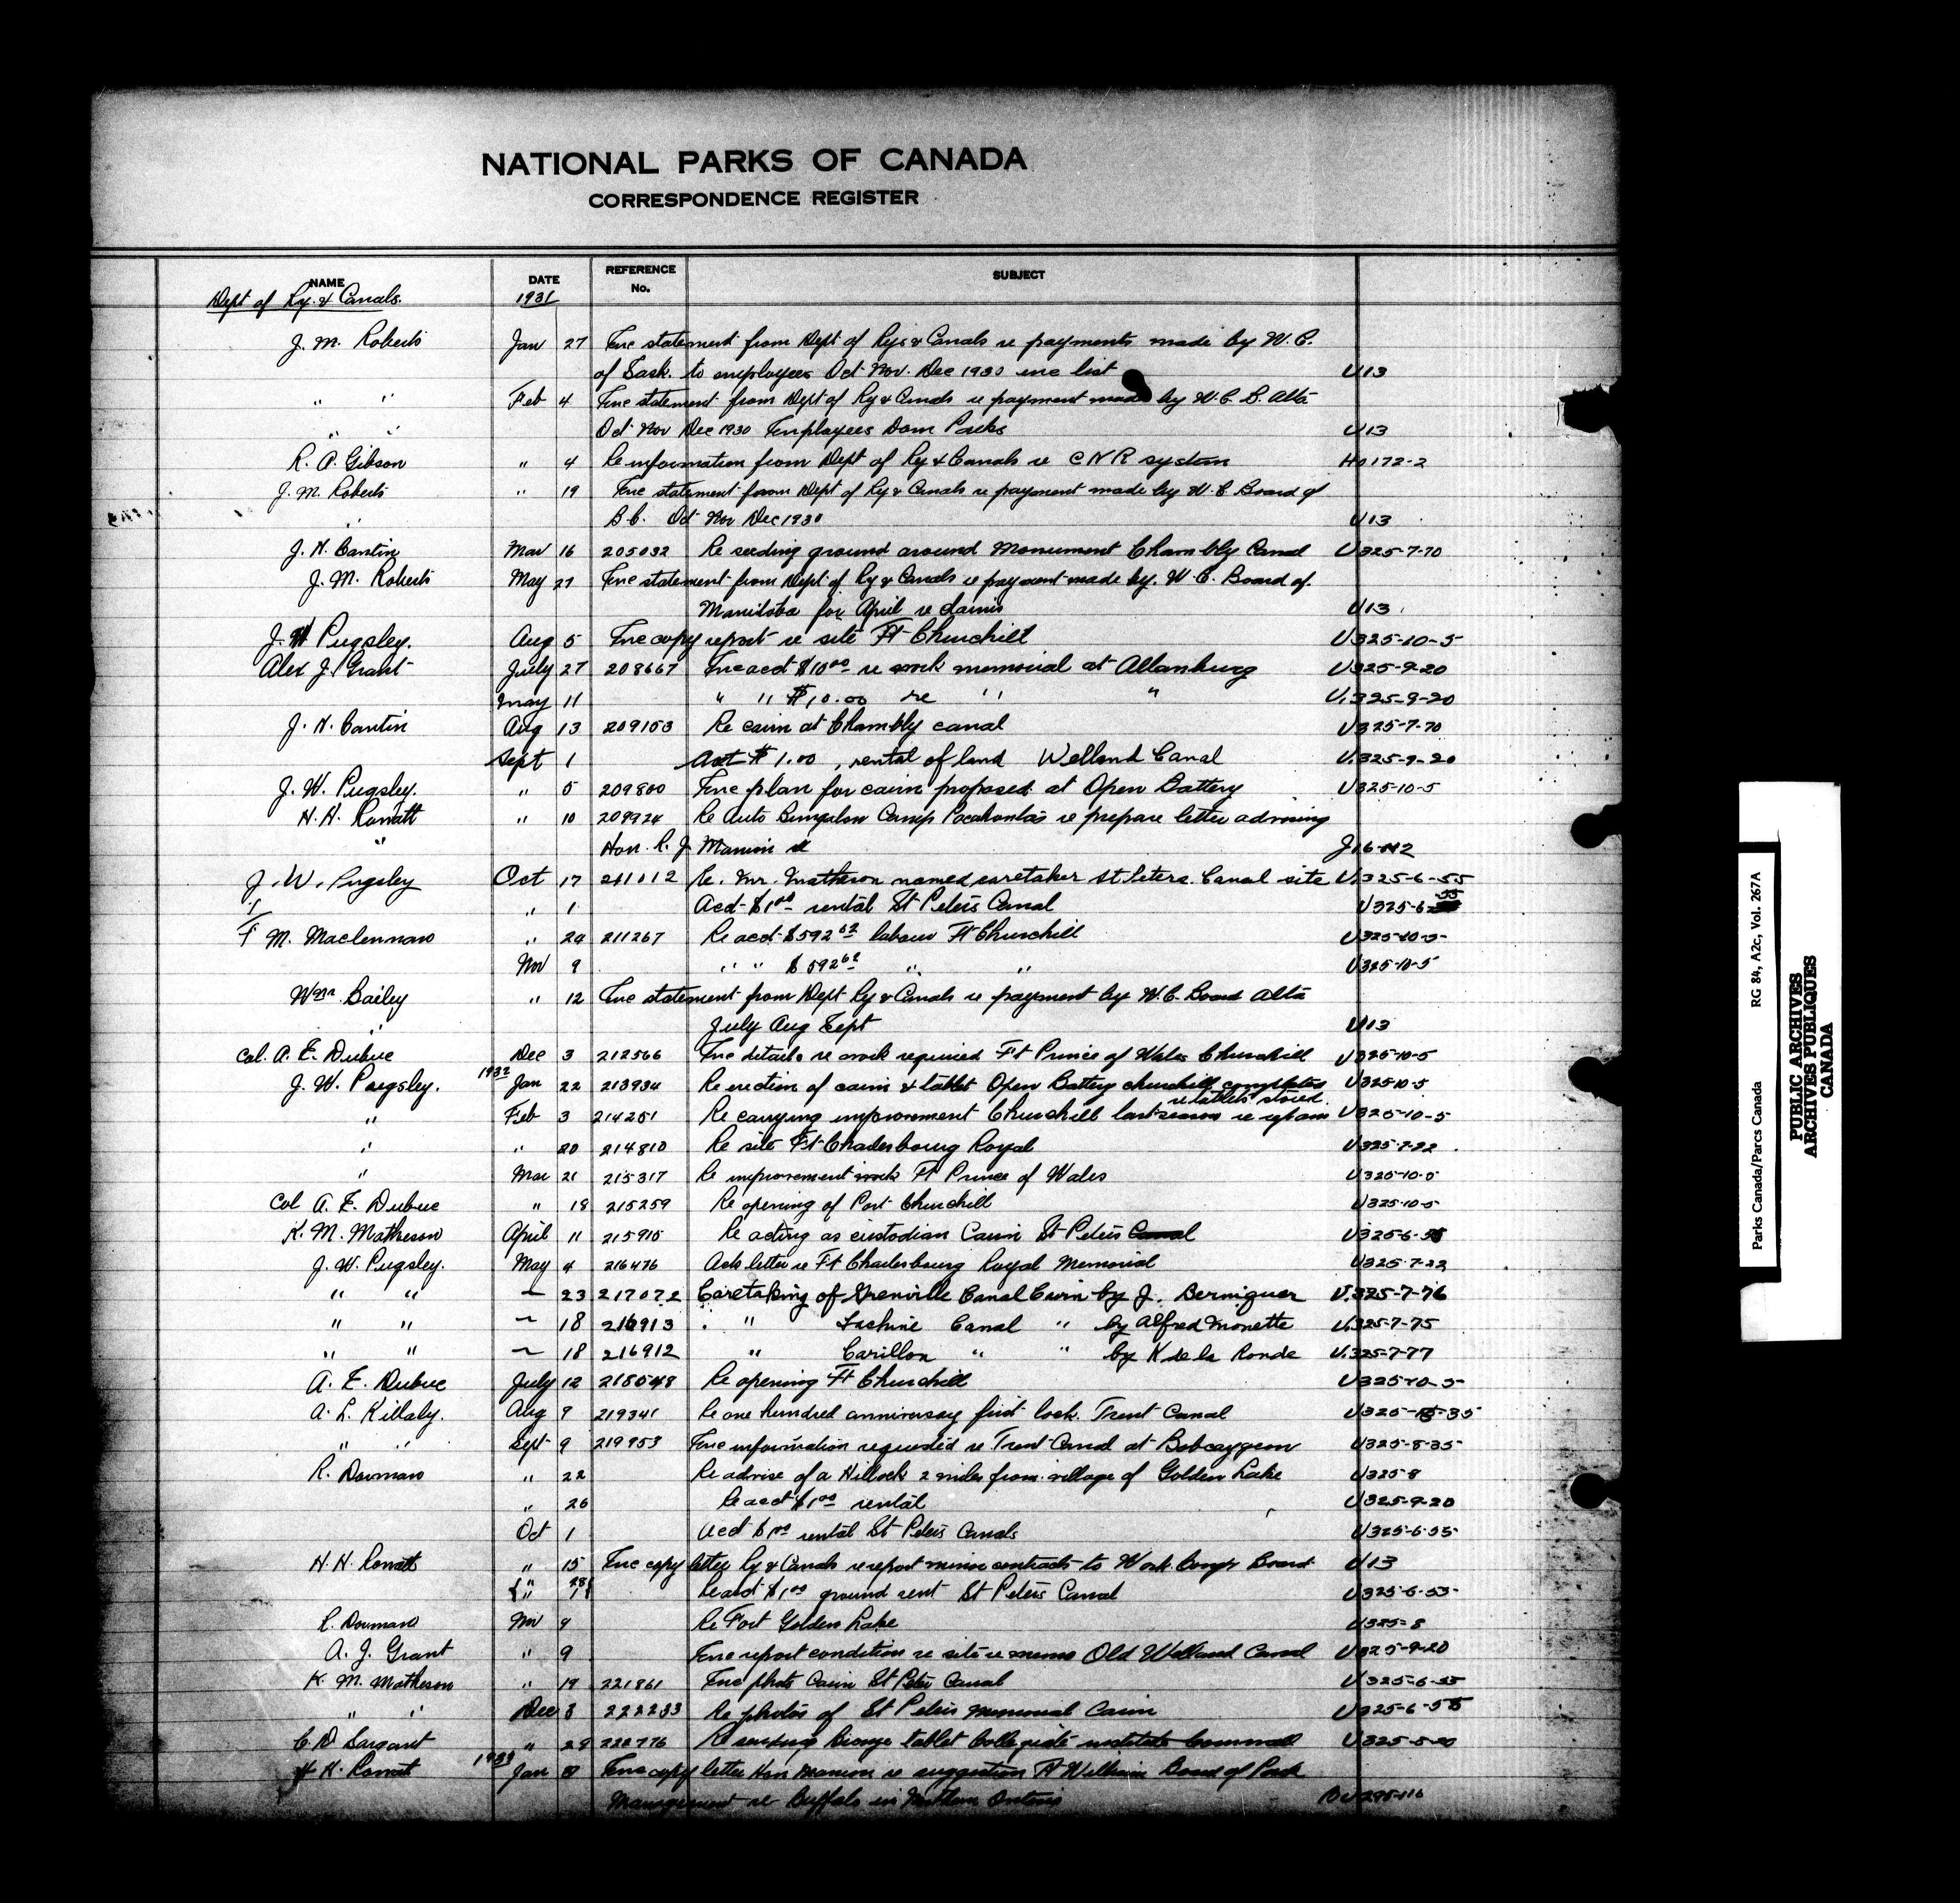 NATIONAL PARKS OF CANADA
CORRESPONDENCE REGISTER
NAME DATE REFERENCE No. SUBJECT
Dept of Ry. & Canals. 1931
J. M. Roberts Jan 27 Enc statement from Dept of Rys & Canals re payments made by W. C.
of Sask. to employees Oct Nov. Dec 1930 enc list U13
" " Feb 4 Enc statement from Dept of Ry & Canals re payment made by W. C. B. Alta
" " Oct Nov Dec 1930 Employees Dom Parks U13
R. A. Gibson " 4 Re information from Dept of Ry & Canals re C N R system H0172-2
J. M. Roberts " 19 Enc statement from Dept of Ry & Canals re payment made by W. C Board of
" B.C. Oct Nov Dec 1930 U13
J. N. Cantin Mar 16 205032 Re seeding ground around Monument Chambly Canal U325-7-70
J. M. Roberts May 27 Enc statement from Dept of Ry & Canals re payment made by. W. C. Board of.
Manitoba for April re claims U13
J. W Pugsley. Aug 5 Enc copy report re site Ft Churchill U325-10-5
Alex J. Grant July 27 208667 Enc acct $10 00 re work memorial at Allanburg U325-9-20
May 11 " " $10.00 re " " U.325-9-20
J. N. Cantin Aug 13 209103 Re cairn at Chambly canal U325-7-70
Sept 1 Acct $ 1.00 , rental of land Welland Canal U.325-9-20
J. W. Pugsley. " 5 209800 Enc plan for cairn proposed at Open Battery U325-10-5
H. H. Rowatt " 10 209924 Re Auto Bungalow Camp Pocahontas re prepare letter advising
" Hon. R. J Manion re J16-112
J. W. Pugsley Oct 17 211012 Re. Mr. Matheson named caretaker St Peters. Canal site U.325-6-55
" " 1 Acct $1 00 rental St Peters Canal U325-6-55
F M. Maclennan " 24 211267 Re acct $592 62 labour Ft Churchill U325-10-5
Nov 9 " " $592 62 " " U325-10-5
Wm Bailey " 12 Enc statement from Dept Ry & Canals re payment by W.C. Board Alta
" July Aug Sept U13
Col. A. E. Dubuc Dec 3 212566 Enc details re work required Ft Prince of Wales Churchill U325-10-5
J. W. Pugsley. 1932 Jan 22 213934 Re erection of cairn & tablet Open Battery churchill completed U325-10-5
re tablets stored.
" Feb 3 214251 Re carrying improvement Churchill last season re repairs U325-10-5
" " 20 214810 Re site Ft Charlesbourg Royal U325-7-22
" Mar 21 215317 Re improvement work Ft Prince of Wales U325-10-5
Col A. E. Dubuc " 18 215259 Re opening of Port Churchill U325-10-5
K. M. Matheson April 11 215910 Re acting as custodian Cairn St Peters Canal U325-6-55
J. W. Pugsley. May 4 216476 Ack letter re Ft Charlesbourg Royal Memorial U325-7-22
" " 23 217072 Caretaking of Grenville Canal Cairn by J. Berniquer U.325-7-76
" " 18 216913 " Lachine Canal " by Alfred Monette U.325-7-75
" " 18 216912 " Carillon " " by K de la Ronde U.325-7-77
A. E. Dubuc July 12 218548 Re opening Ft Churchill U325-10-5
A. L. Killaly. Aug 9 219341 Re one hundred anniversay first lock. Trent Canal U325-8-35
" " Sept 9 219953 Enc information requested re Trent Canal at Bobcaygeon U325-8-35
R. Dorman " 22 Re advise of a Hillock 2 miles from village of Golden Lake U325-8
" 26 Re acct $1 00 rental U325-9-20
Oct 1 Acct $1 00 rental St Peters Canals U325-6-55
H. H. Rowatt " 15 Enc copy letter Ry & Canals re report minor contracts to Work. Comp Board U13
" 28 " 1 Re acct $1 00 ground rent St Peters Canal U325-6-55
R. Dorman Nov 9 Re Fort Golden Lake U325-8
A. J. Grant " 9 Enc report condition re site re memo Old Welland Canal U325-9-20
K. M. Matheson " 19 221861 Enc photo Cairn St Peter Canal U325-6-55
" " Dec 3 222233 Re photos of St Peters Memorial Cairn U325-6-55
C. D Sargant " 28 222776 Re bronze tablet Collegiate institute Cornwall
H H. Rowatt 1933 Jan Enc copy letter Hon Manion re suggestion Ft William Board of Park
Management re Buffalo in Northern Ontario
Parks Canada/Parcs Canada RG 84, A2c, Vol. 267A
PUBLIC ARCHIVES
ARCHIVES PUBLIQUES
CANADA